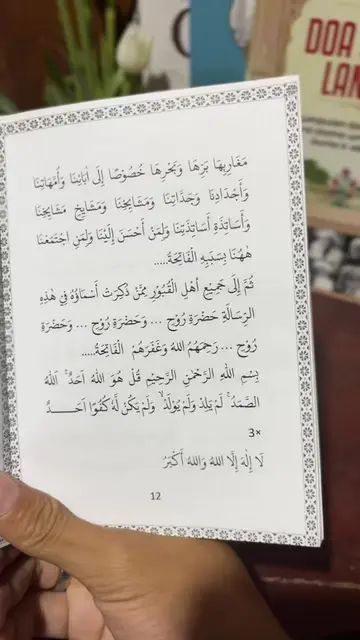 مَغَارِبِهَا بَرِّهَا وَبَحْرِهَا خُصُوْصًا إِلَى اٰبَائِنَا وَاُمَّهَاتِنَا
وَأَجْدَادِنَا وَجَدَّاتِنَا وَمَشَايِخِنَا وَمَشَايِخِ مَشَايِخِنَا
وَأَسَاتِذَةِ أَسَاتِذَتِنَا وَلِمَنْ أَحْسَنَ إِلَيْنَا وَلِمَنِ اجْتَمَعْنَا
هٰهُنَا بِسَبَبِهِ الْفَاتِحَةُ.....
ثُمَّ إِلَى جَمِيْعِ أَهْلِ الْقُبُوْرِ مِمَّنْ ذُكِرَتْ أَسْمَاؤُهُ فِيْ هٰذِهِ
الرِّسَالَةِ حَضْرَةِ رُوْحِ ... وَحَضْرَةِ رُوْحِ ... وَحَضْرَةِ
رُوْحِ ... رَحِمَهُمُ اللهُ وَغَفَرَهُمْ الْفَاتِحَةُ.....
بِسْمِ اللهِ الرَّحْمٰنِ الرَّحِيْمِ قُلْ هُوَ اللهُ اَحَدٌ ۚ اَللهُ
الصَّمَدُ ۚ لَمْ يَلِدْ وَلَمْ يُوْلَدْ ۙ وَلَمْ يَكُنْ لَّهٗ كُفُوًا اَحَــــدٌ
3×
لَا إِلٰهَ إِلَّا اللهُ وَاللهُ أَكْبَرُ
12
DOA
LAN